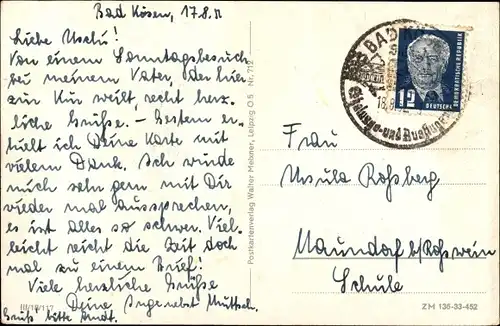 Bad Kösen, 17.8.
Liebe Uschi!
Von einem Sonntagsbesuch
bei meinem Vater, der hier
zur Kur weilt, recht herz-
liche Grüße. – Gestern er-
hielt ich Deine Karte mit
vielem Dank. Ich würde
mich sehr gern mit Dir
wieder mal aussprechen,
es ist alles so schwer. Viel-
leicht reicht die Zeit doch
mal zu einem Brief!
Viele herzliche Grüße
Deine Inge nebst Muttsch.
Grüß bitte
III/18/117
Postkartenverlag Walter Meisner, Leipzig O 5 Nr. 712
BAD
18.8.
12
DEUTSCHE
DEMOKRATISCHE REPUBLIK
Frau
Ursula Roßberg
Naundorf b/Roßwein
Schule
ZM 135-33-452